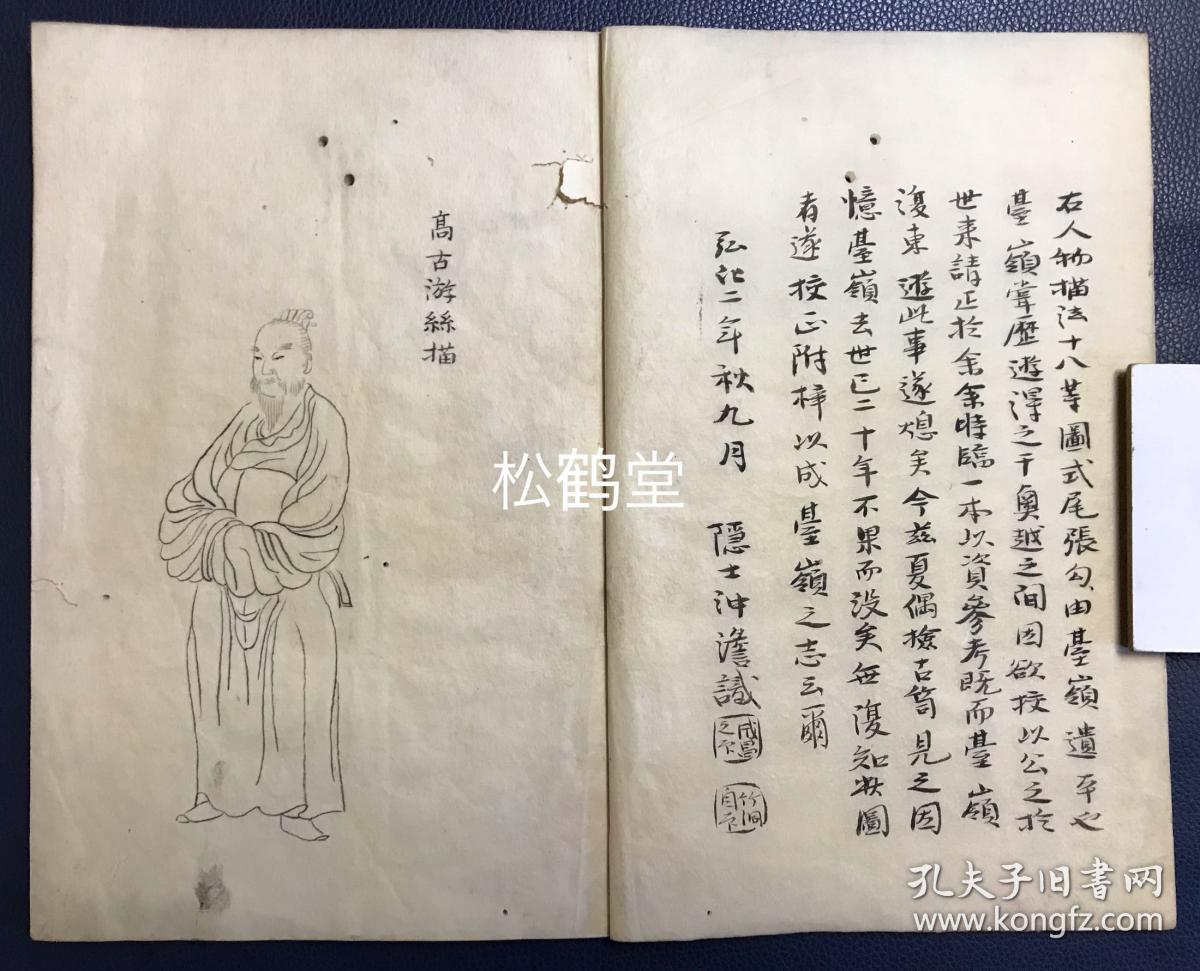 右人物描法十八等圖式尾張勾田臺嶺遺平也
臺嶺嘗歷遊得之于奧越之间因欲挍以公之於
世来請正於余余時臨一本以資參考既而臺嶺
復東遊此事遂熄矣今茲夏偶撿古笥見之因
憶臺嶺去世已二十年不果而没矣無復知此圖
者遂挍正附梓以成臺嶺之志云爾
弘化二年秋九月 隐士沖澹識
成昌之印
竹洞
高古游絲描
松鹤堂
孔夫子旧書网
www.kongfz.com